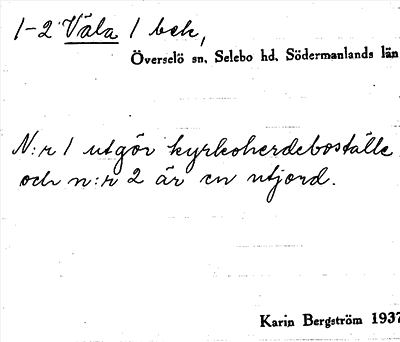 1-2 Väla 1 bek,
Överselö sn. Selebo hd. Södermanlands län
N:r 1 utgör kyrkoherdeboställe
och n:r 2 är en utjord.
Karin Bergström 1937